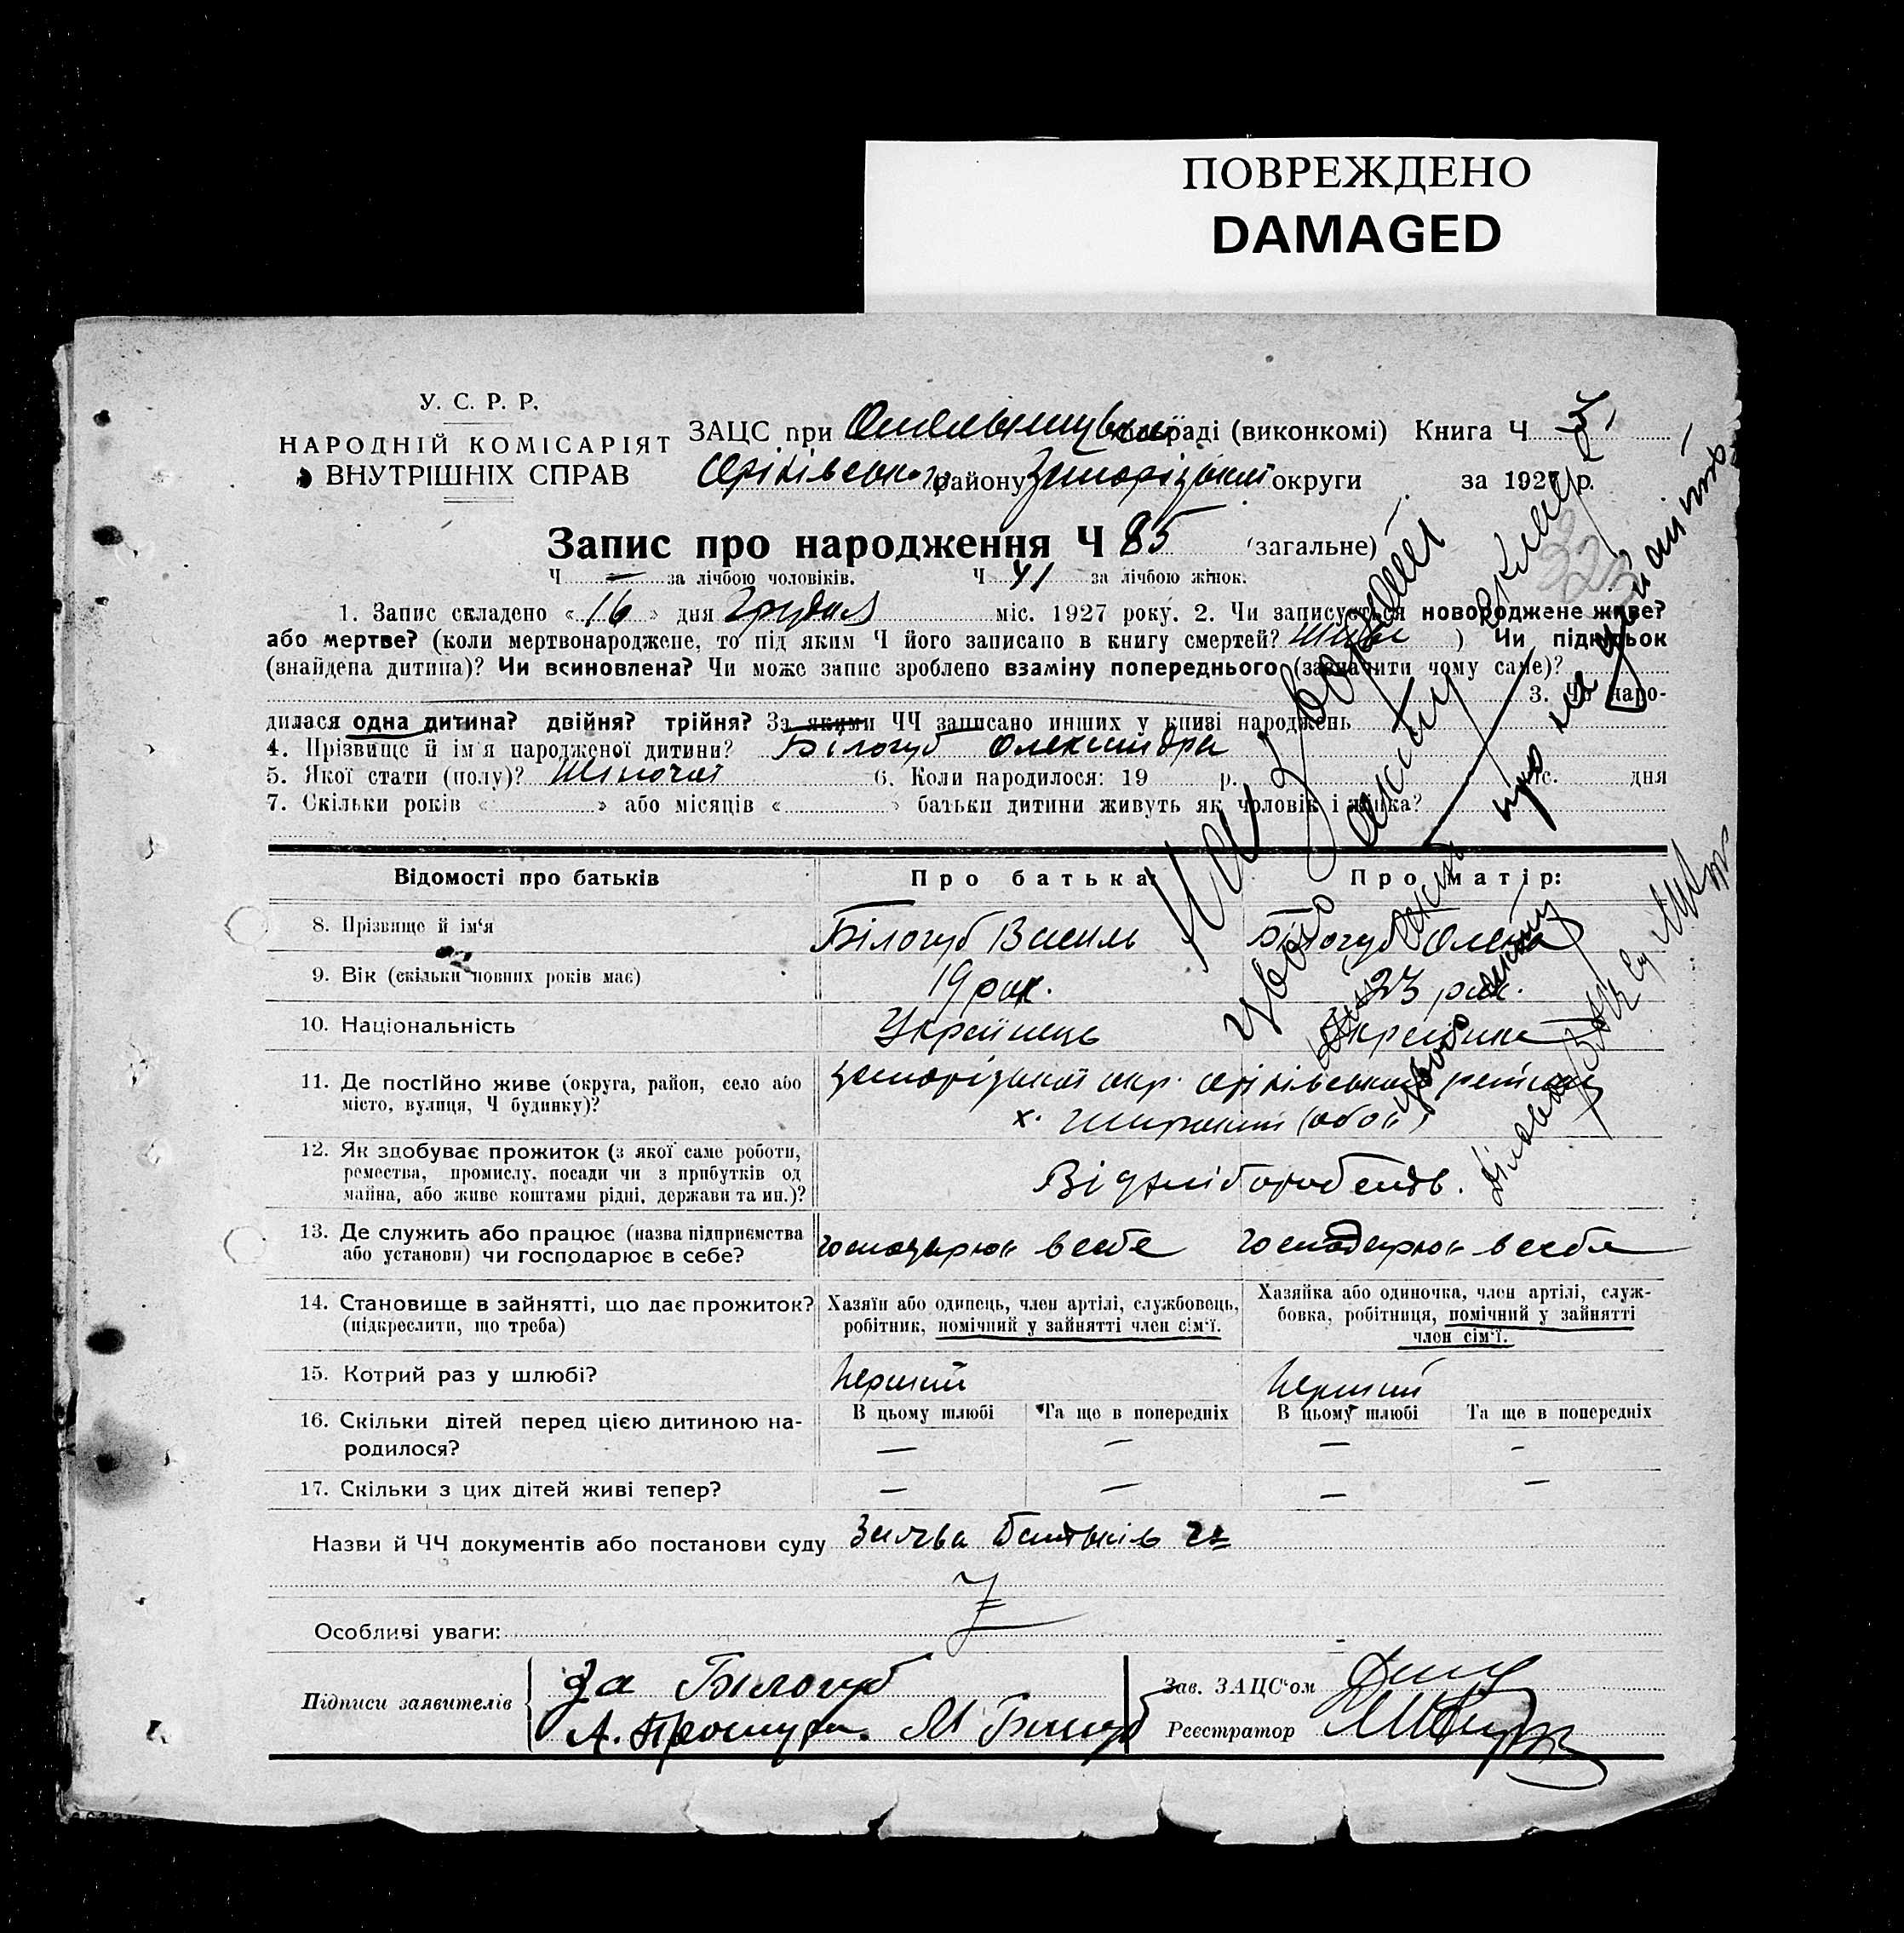 ПОВРЕЖДЕНО
DAMAGED
У. С. Р. Р.
НАРОДНІЙ КОМІСАРІЯТ
ВНУТРІШНІХ СПРАВ
ЗАЦС при Омельницькій сільраді (виконкомі) Книга Ч
Оріхівського району Запорізької округи за 1927 р.
Запис про народження Ч 85 (загальне)
Ч — за лічбою чоловіків. Ч 41 за лічбою жінок.
322
1. Запис складено «16» дня Грудня міс. 1927 року. 2. Чи записується новороджене живе?
або мертве? (коли мертвонароджене, то під яким Ч його записано в книгу смертей? живе ) Чи підкидьок
(знайдена дитина)? Чи всиновлена? Чи може запис зроблено взаміну попереднього (зазначити чому саме)?
3. Чи наро-
дилася одна дитина? двійня? трійня? За якими ЧЧ записано инших у книзі народжень
4. Прізвище й ім'я народженої дитини? Білогуб Олександра
5. Якої стати (полу)? Жіночої 6. Коли народилося: 19 р. міс. дня
7. Скільки років « » або місяців « » батьки дитини живуть як чоловік і жінка?
Відомості про батьків Про батька: Про матір:
8. Прізвище й ім'я Білогуб Василь Білогуб Олена
9. Вік (скільки повних років має) 19 рок. 23 рок.
10. Національність Українець Українка
11. Де постійно живе (округа, район, село або
місто, вулиця, Ч будинку)? Запорізької окр. Оріхівського району
х. Широкий (обоє)
12. Як здобуває прожиток (з якої саме роботи,
ремества, промислу, посади чи з прибутків од
майна, або живе коштами рідні, держави та ин.)? Від хліборобства.
13. Де служить або працює (назва підприємства
або установи) чи господарює в себе? господарює в себе господарює в себе
14. Становище в зайнятті, що дає прожиток?
(підкреслити, що треба)
Хазяїн або одинець, член артілі, службовець,
робітник, помічний у зайнятті член сім'ї.
Хазяйка або одиночка, член артілі, служ-
бовка, робітниця, помічний у зайнятті
член сім'ї.
15. Котрий раз у шлюбі? Перший Перший
16. Скільки дітей перед цією дитиною на-
родилося?
В цьому шлюбі Та ще в попередніх В цьому шлюбі Та ще в попередніх
— — — -
17. Скільки з цих дітей живі тепер? — — — —
Назви й ЧЧ документів або постанови суду Заява батьків
Особливі уваги:
Підписи заявителів За Білогуб
А. М Білогуб
Зав. ЗАЦС'ом
Реєстратор
На звороті
цього акту
про
цього акту